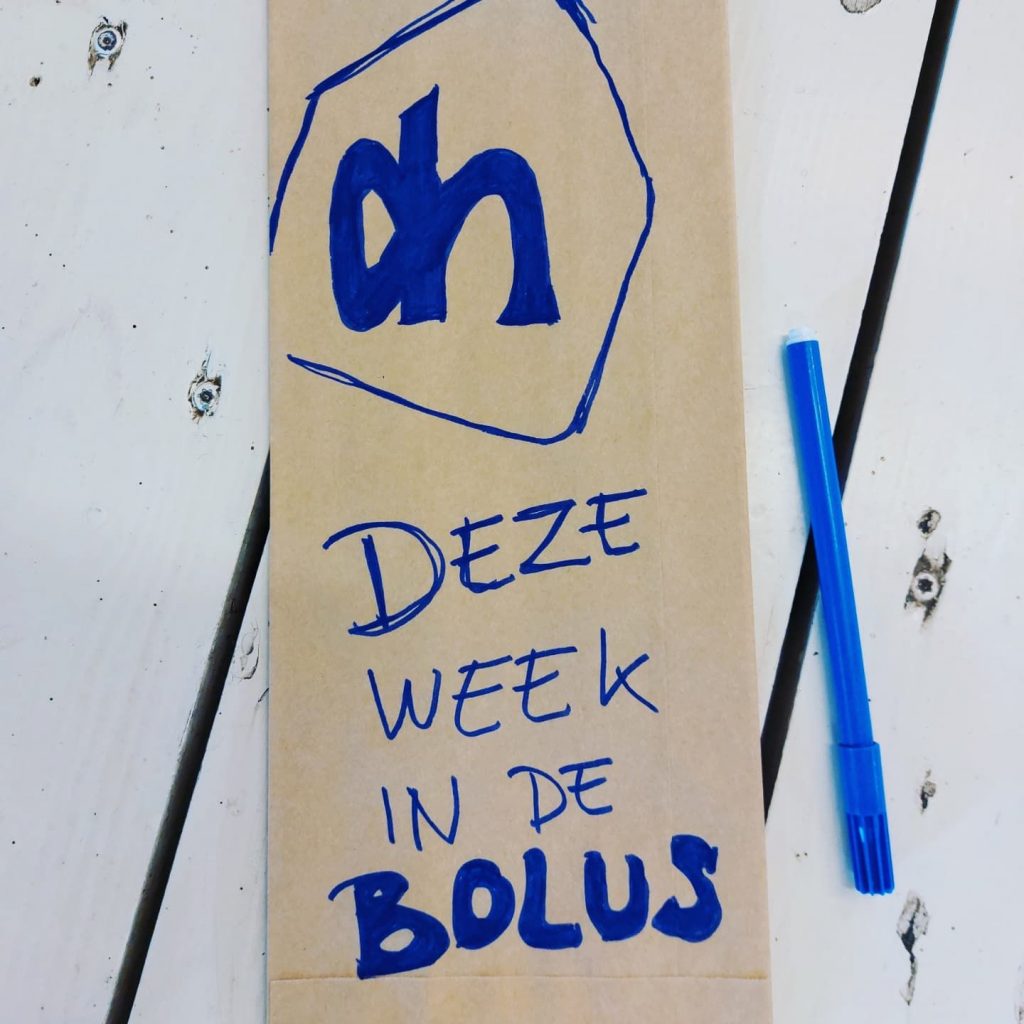 ah
DEZE
WEEK
IN DE
BOLUS